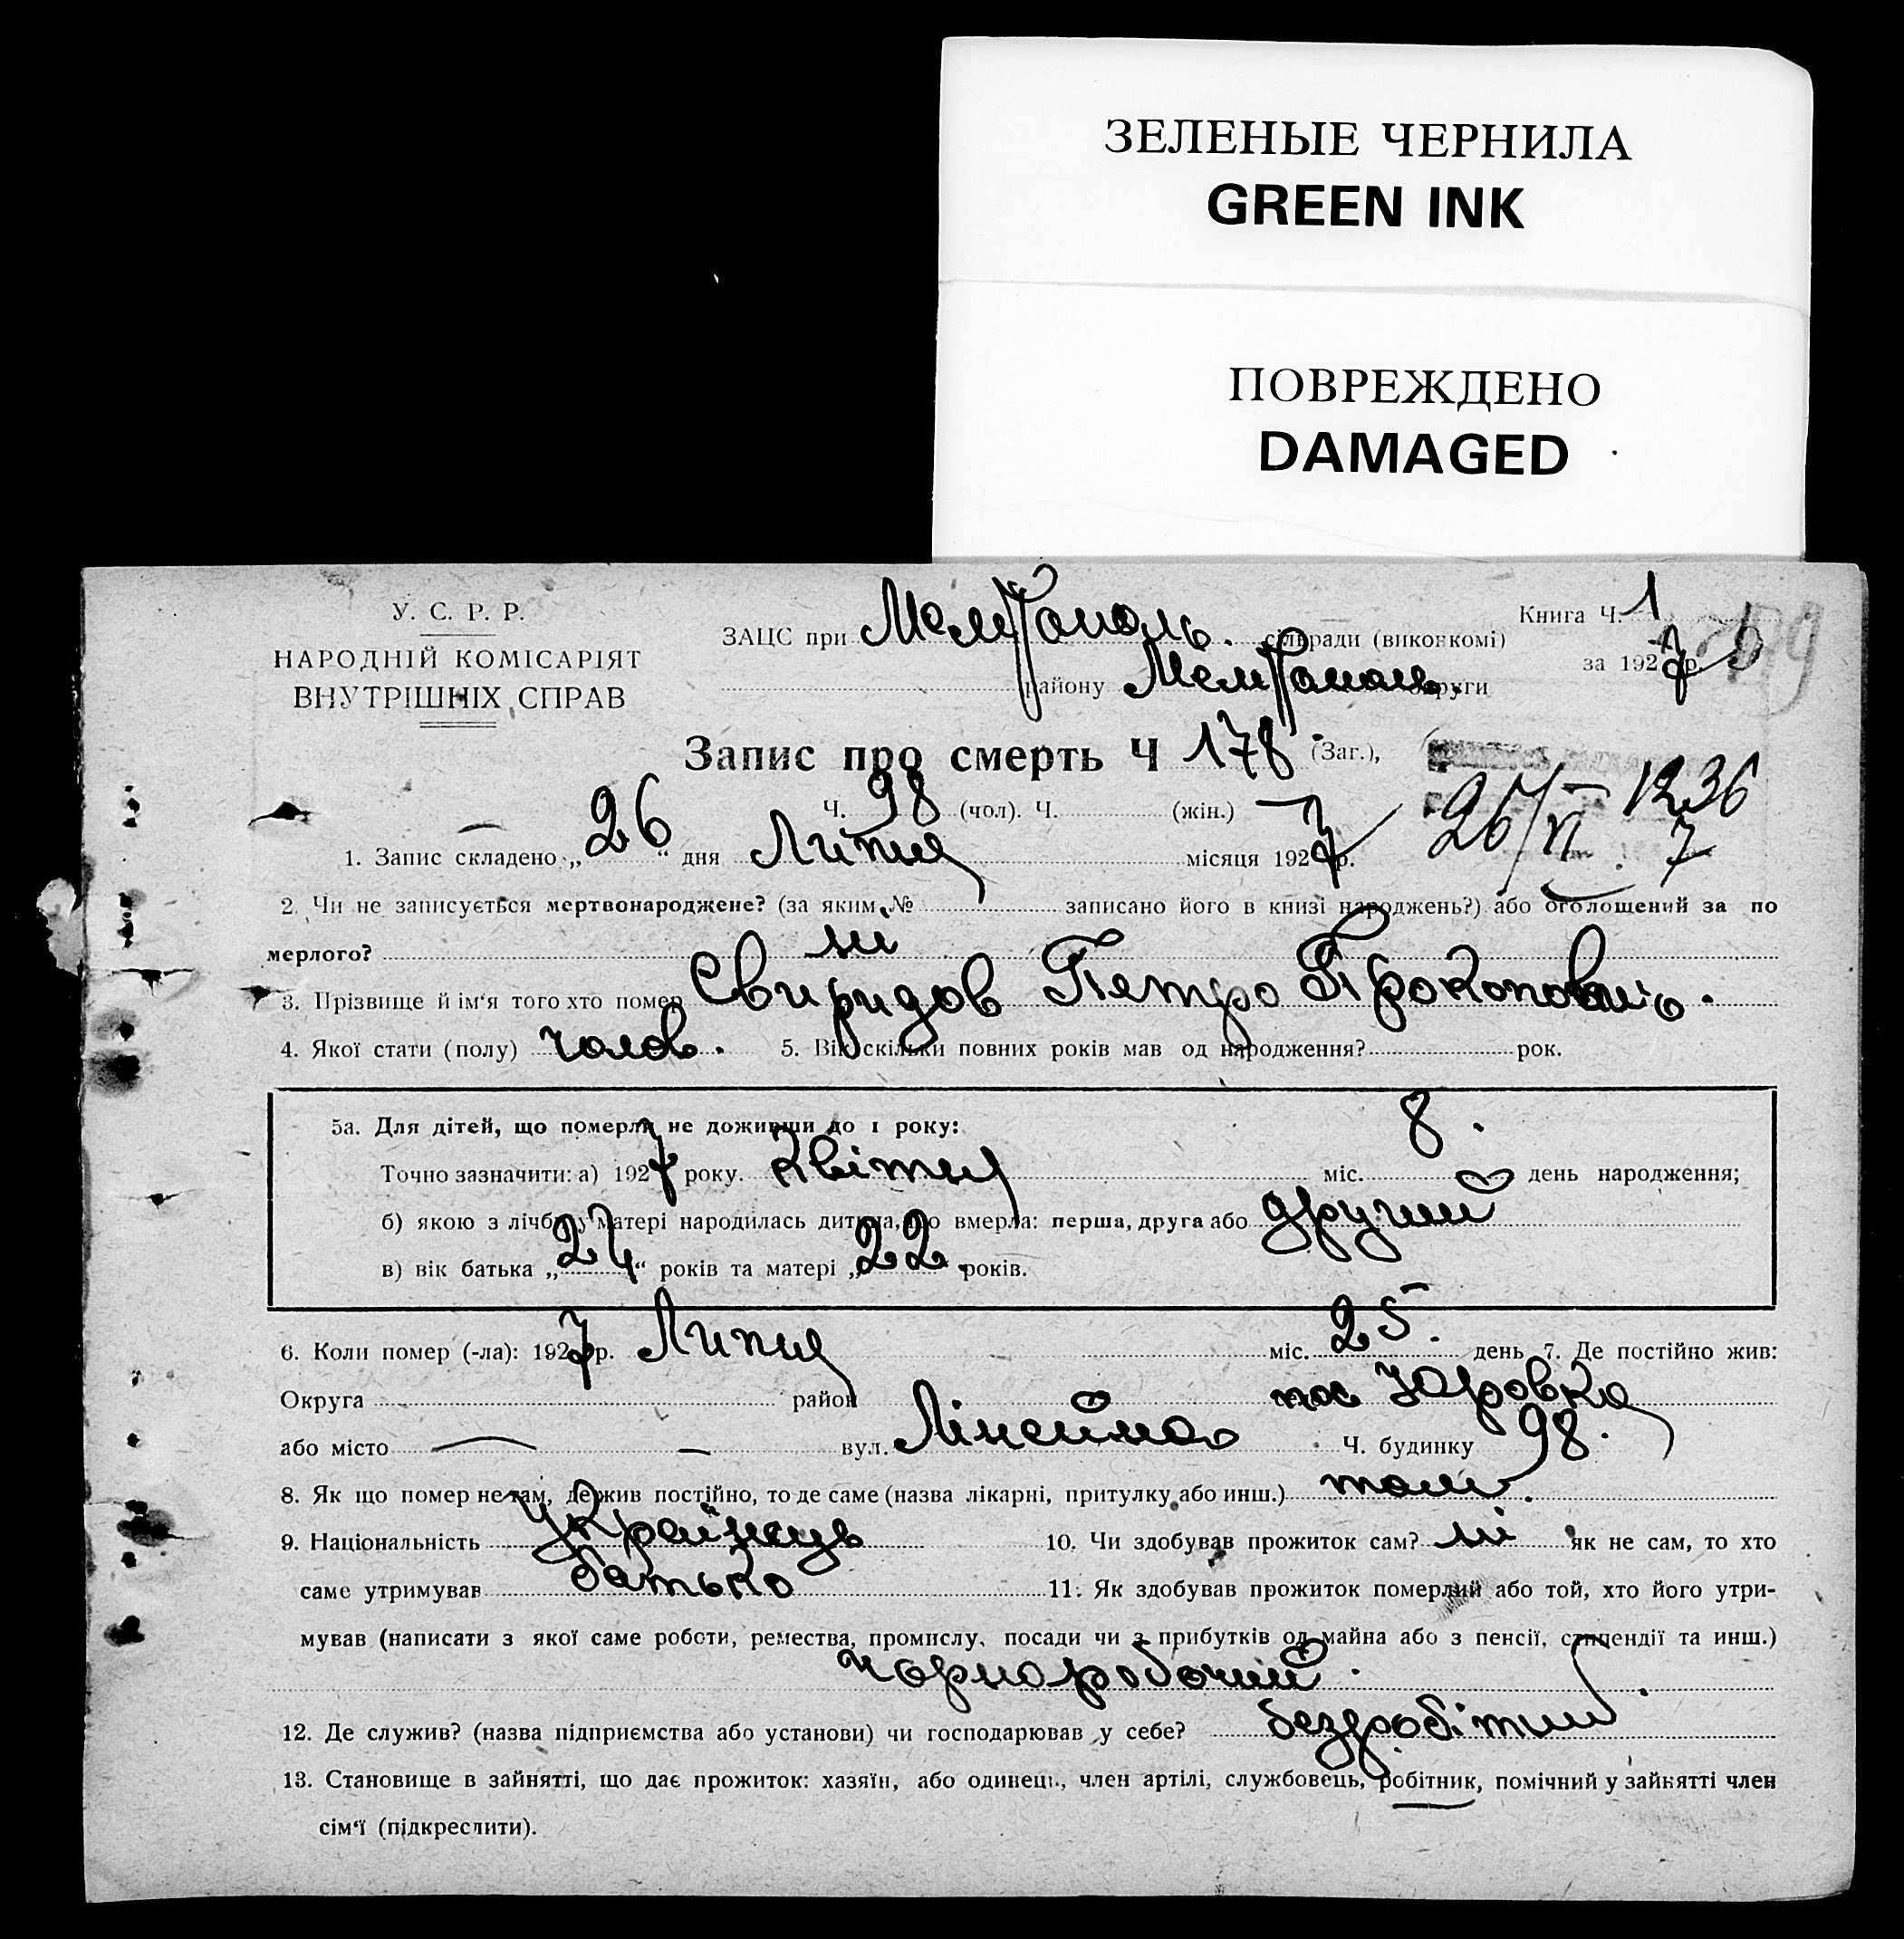 ЗЕЛЕНЫЕ ЧЕРНИЛА
GREEN INK
ПОВРЕЖДЕНО
DAMAGED
У. С. Р. Р.
НАРОДНІЙ КОМІСАРІЯТ
ВНУТРІШНІХ СПРАВ
Книга Ч. 1
ЗАЦС при Мелітополь. сільради (виконкомі)
за 1927 р.
району Мелітополь. округи
Запис про смерть Ч 178. (Заг.),
Ч. 98 (чол). Ч. (жін.)
26/VI 1236
7
1. Запис складено „26“ дня Липня місяця 1927 р.
2. Чи не записується мертвонароджене? (за яким № записано його в книзі народжень?) або оголошений за по
мерлого? ні
3. Прізвище й ім'я того хто помер Свиридов Петро Прокопович.
4. Якої стати (полу) чолов. 5. Вік скільки повних років мав од народження? рок.
5а. Для дітей, що померли не доживши до 1 року:
Точно зазначити: а) 1927 року. Квітня міс. 8. день народження;
б) якою з лічби у матері народилась дитина, що вмерла: перша, друга або другий
в) вік батька „24“ років та матері „22“ років.
6. Коли помер (-ла): 1927 р. Липня міс. 25. день 7. Де постійно жив:
Округа район пос Юровка
або місто — вул. Лінейна Ч. будинку 98.
8. Як що помер не там, де жив постійно, то де саме (назва лікарні, притулку або инш.) там.
9. Національність Українець 10. Чи здобував прожиток сам? ні як не сам, то хто
саме утримував батько 11. Як здобував прожиток померлий або той, хто його утри-
мував (написати з якої саме роботи, ремества, промислу, посади чи з прибутків од майна або з пенсії, стипендії та инш.)
чорноробочий.
12. Де служив? (назва підприємства або установи) чи господарював у себе? бездробітний.
13. Становище в зайнятті, що дає прожиток: хазяїн, або одинець, член артілі, службовець, робітник, помічний у зайнятті член
сім'ї (підкреслити).